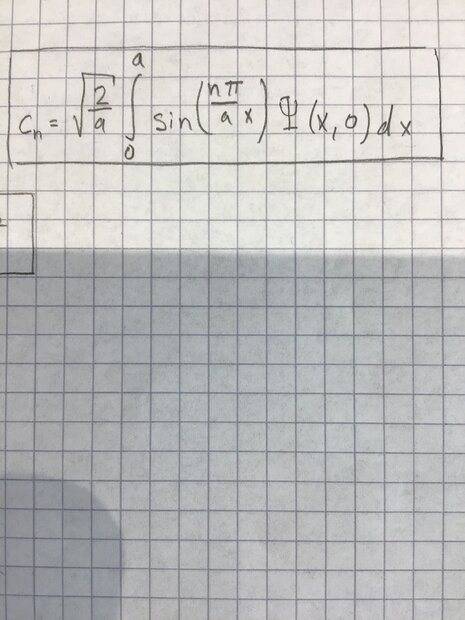 cₙ = √(2/a) ∫₀ᵃ sin(nπ/a x) Ψ(x, 0) dx